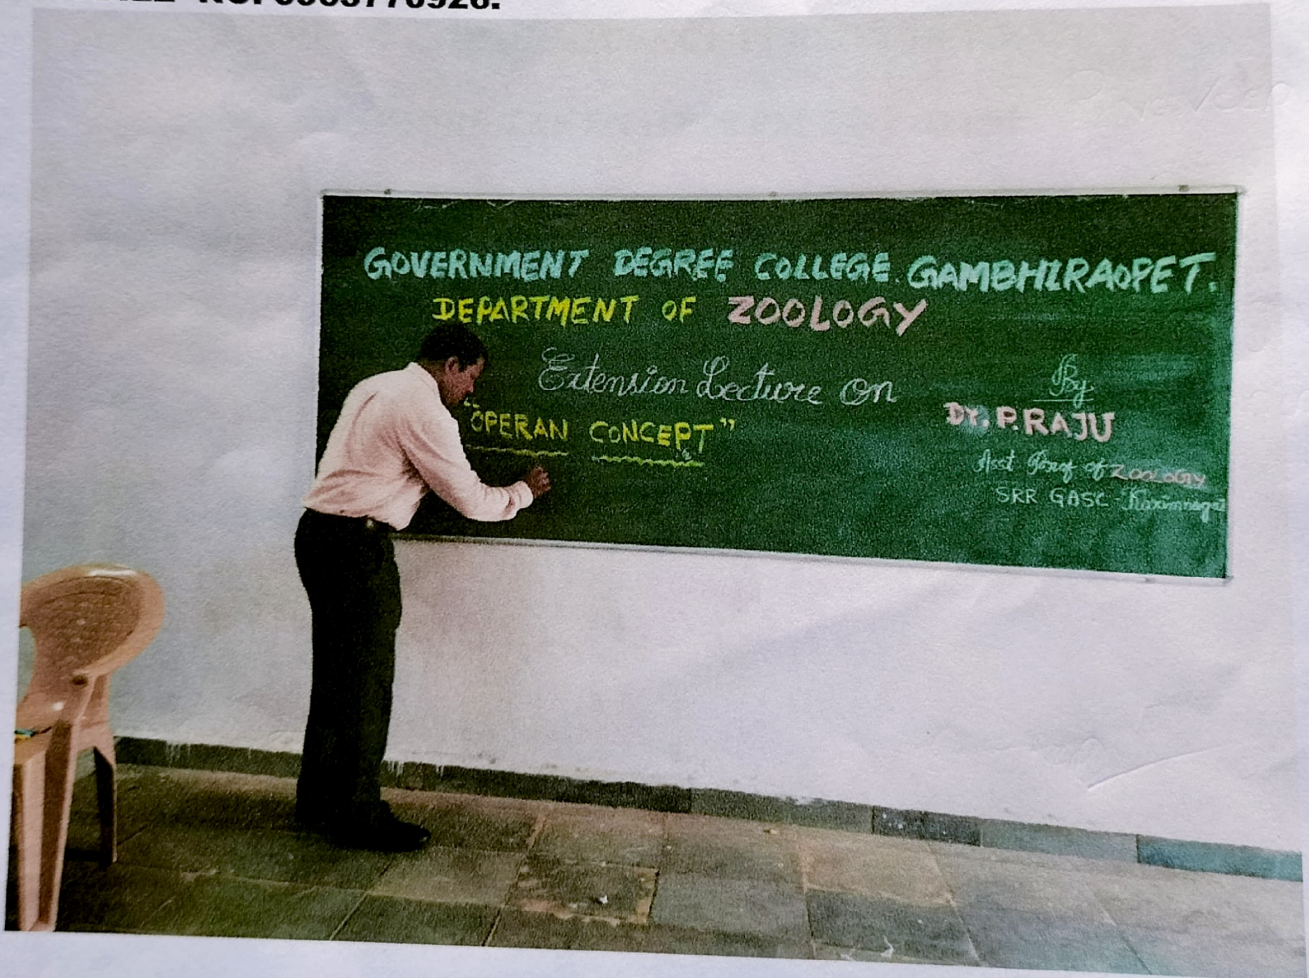 GOVERNMENT DEGREE COLLEGE. GAMBHIRAOPET.
DEPARTMENT OF ZOOLOGY
Extension Lecture On
"OPERAN CONCEPT"
By
Dr. P. RAJU
Asst Prof of ZOOLOGY
SRR GASC - Karimnagar